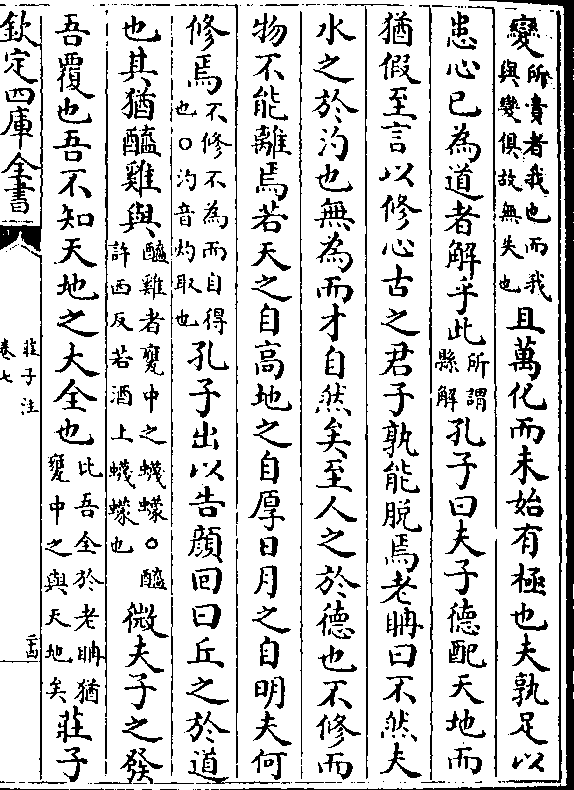 變所貴者我也而我與變俱故無失也且萬化而未始有極也夫孰足以
患心已為道者解乎此所謂縣解孔子曰夫子德配天地而
猶假至言以修心古之君子孰能脫焉老聃曰不然夫
水之於汋也無為而才自然矣至人之於德也不修而
物不能離焉若天之自高地之自厚日月之自明夫何
修焉不修不為而自得也○汋音灼取也孔子出以告顔回曰丘之於道
也其猶醯雞與醯雞者甕中之蠛蠓○醯許西反若酒上蠛蠓也微夫子之發
吾覆也吾不知天地之大全也比吾全於老聃猶甕中之與天地矣莊子
欽定四庫全書
莊子注
卷七
二十四